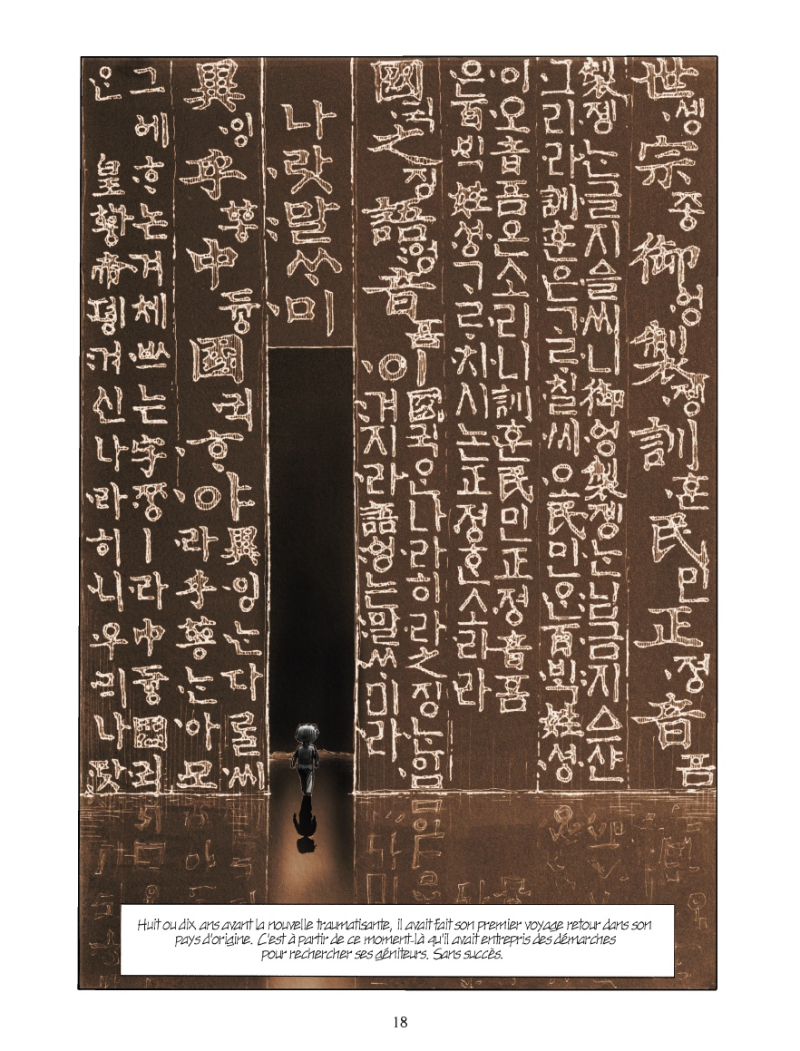 世솅宗종御엉製졩訓훈民민正정音흠
製졩는글지슬씨니御엉製졩는님금지스샨
그리라訓훈은ᄀᆞᄅᆞ칠씨오民민ᄋᆞᆫ百ᄇᆡᆨ姓셩
이오音흠은소리니訓훈民민正정音흠
은百ᄇᆡᆨ姓셩ᄀᆞᄅᆞ치시논正정ᄒᆞᆫ소리라
國귁之징語엉音흠이
國귁ᄋᆞᆫ나라히라之징ᄂᆞᆫ입
겨지라語엉는말ᄊᆞ미라
나랏말ᄊᆞ미
異잉乎ᅘᅩᆼ中듕國귁ᄒᆞ야
異잉ᄂᆞᆫ다ᄅᆞᆯ씨
라乎ᅘᅩᆼᄂᆞᆫ아모
그에ᄒᆞ논겨체쓰는字ᄍᆞᆼㅣ라中듕國귁
은皇황帝뎽겨신나라히니우리나랏
Huit ou dix ans avant la nouvelle traumatisante, il avait fait son premier voyage retour dans son
pays d'origine. C'est à partir de ce moment-là qu'il avait entrepris des démarches
pour rechercher ses géniteurs. Sans succès.
18